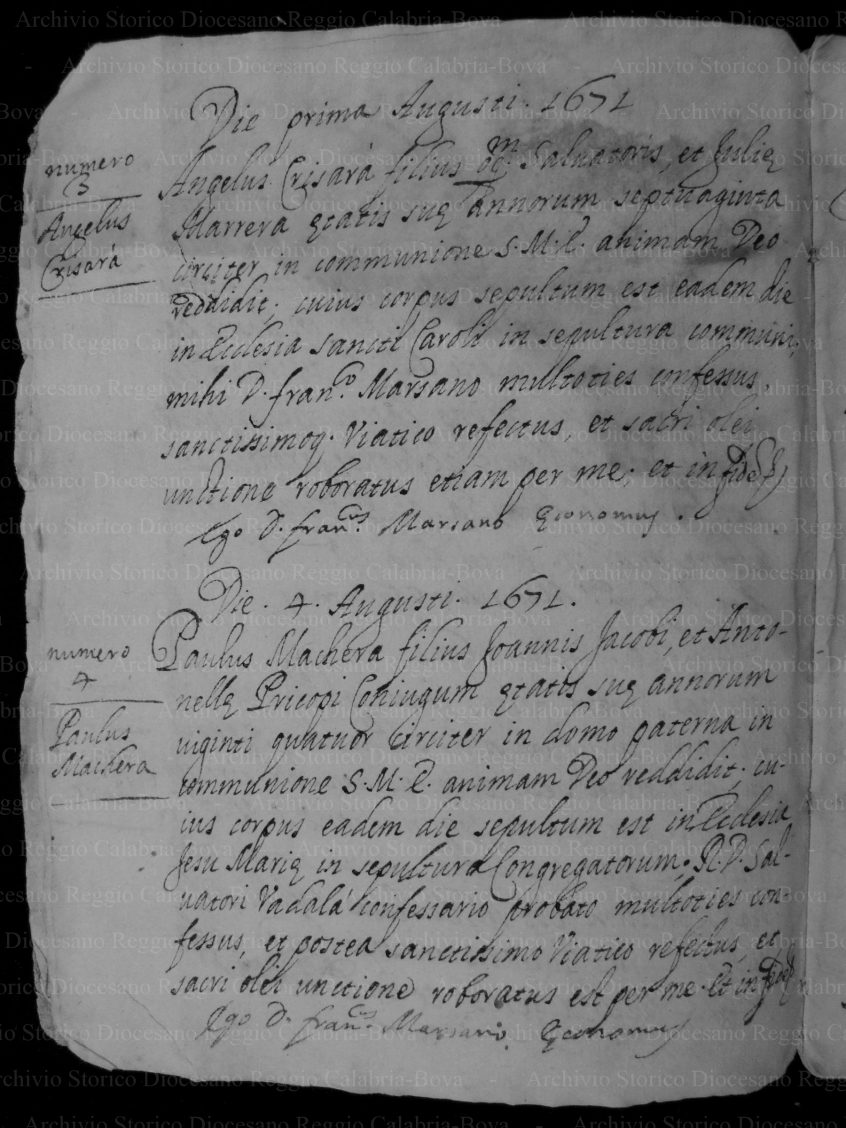 Die prima Augusti. 1671
numero
3
Angelus
Crisarà
Angelus Crisarà filius qm Salvatoris, et Julię
Marrera ętatis suę annorum septuaginta
circiter in communione S. M. E. animam Deo
reddidit; cuius corpus sepultum est eadem die
in Ecclesia sancti Caroli in sepultura communi,
mihi D. fran.º Marsano multoties confessus,
sanctissimoq. Viatico refectus, et sacri olei
unctione roboratus etiam per me; et in fide
Ego D. fran.cus Marsano Economus.
Die. 4. Augusti. 1671.
numero
4
Paulus
Machera
Paulus Machera filius Joannis Jacobi, et Anto-
nellę Pricopi Coniugum ętatis suę annorum
viginti quatuor circiter in domo paterna in
communione S. M. E. animam Deo reddidit, cu-
ius corpus eadem die sepultum est in Ecclesia
Jesu Marię in sepultura Congregatorum. R. D. Sal-
vatori Vadalà confessario probato multoties con-
fessus, et postea sanctissimo Viatico refectus, et
sacri olei unctione roboratus est per me. Et in fide
Ego D. fran.cus Marsano Economus
Archivio Storico Diocesano Reggio Calabria-Bova